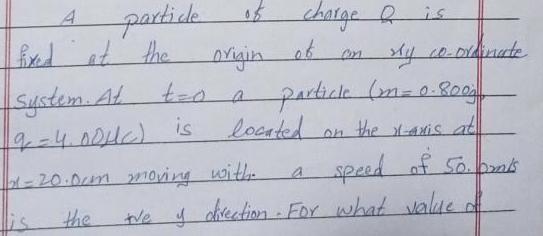 A particle of charge Q is
fixed at the origin of an xy co-ordinate
system. At t=0 a particle (m=0.800g,
q=4.00μc) is located on the x-axis at
x=20.0cm moving with a speed of 50.0m/s
is the +ve y direction. For what value of